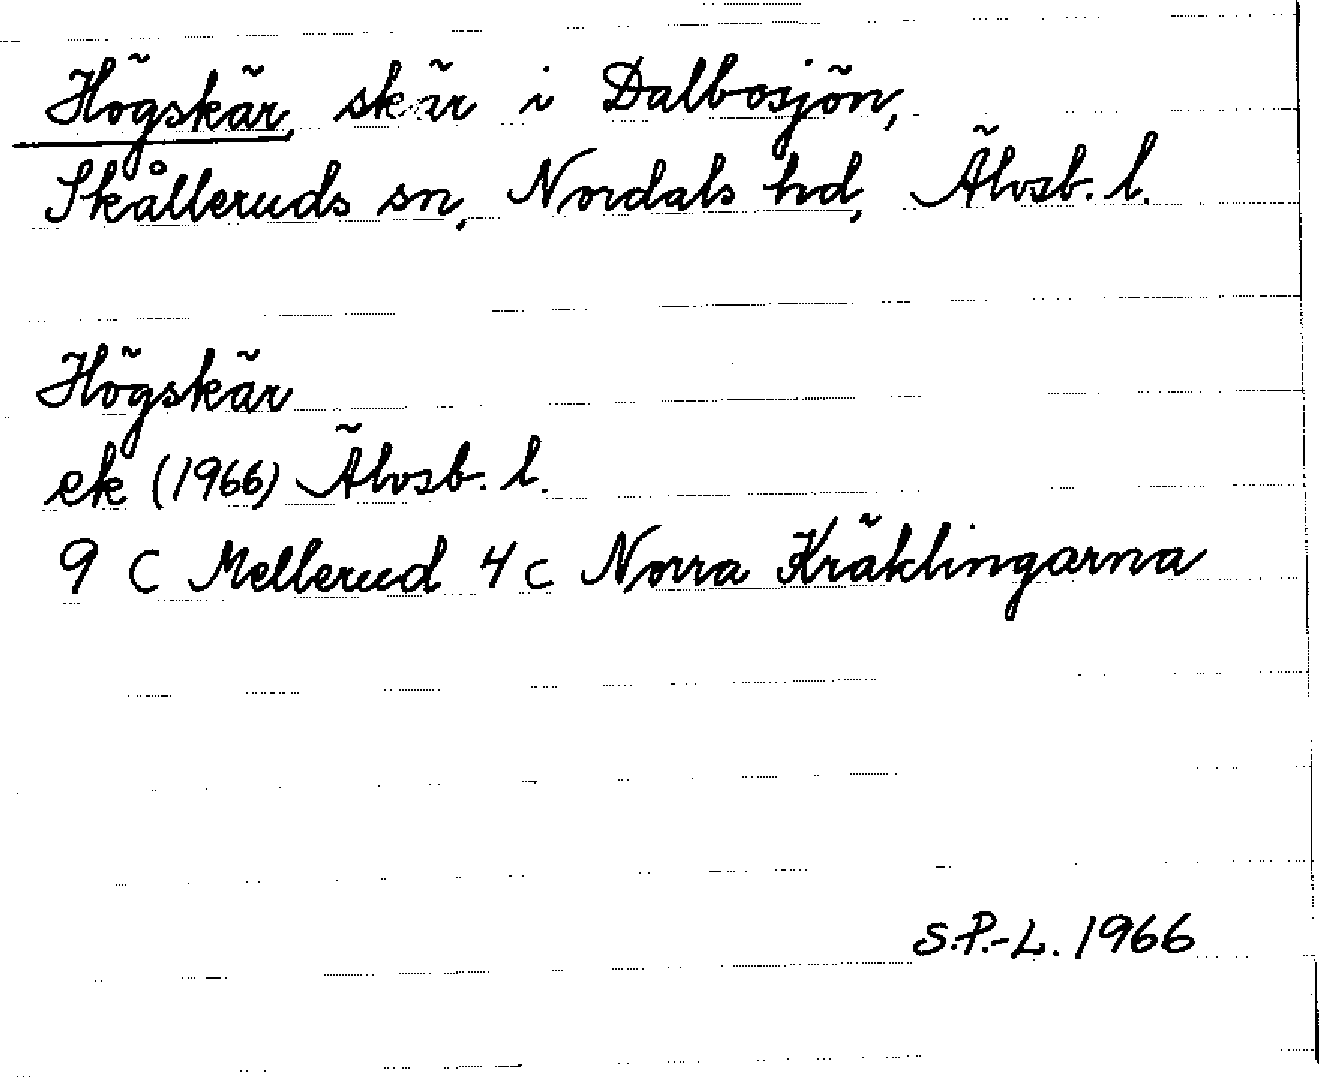 Högskär, skär i Dalbosjön,
Skålleruds sn, Nordals hd, Älvsb. l.
Högskär
ek (1966) Älvsb. l.
9 C Mellerud 4 c Norra Kräklingarna
S.P.-L. 1966